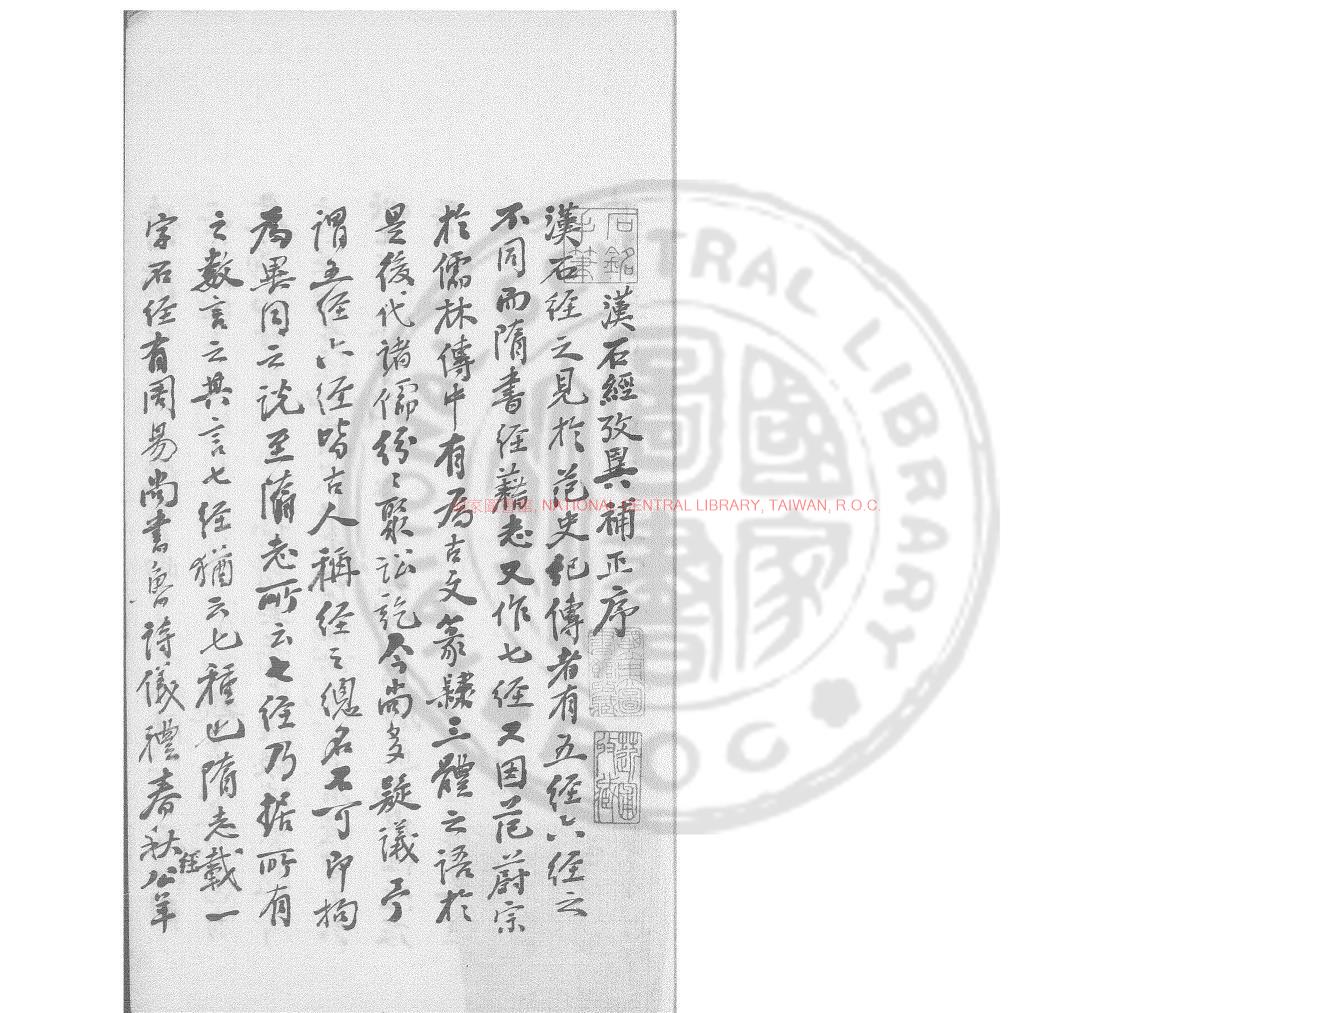 漢石經攷異補正序
漢石経之見於范史紀傳者有五経六経之
不同而隋書経藉志又作七経又因范蔚宗
於儒林傳中有為古文篆隸三體之語於
是後代諸儒紛〻聚訟訖今尚多疑議予
謂五経六経皆古人稱経之總名不可印拘
為異同之説至隋志所云七経乃据所有
之數言之其言七経猶云七種也隋志載一
字石経有周易尚書魯詩儀禮春秋経公羊
石銘
手筆
國家圖書館, NATIONAL CENTRAL LIBRARY, TAIWAN, R.O.C.
NATIONAL CENTRAL LIBRARY
R.O.C.
國家圖書